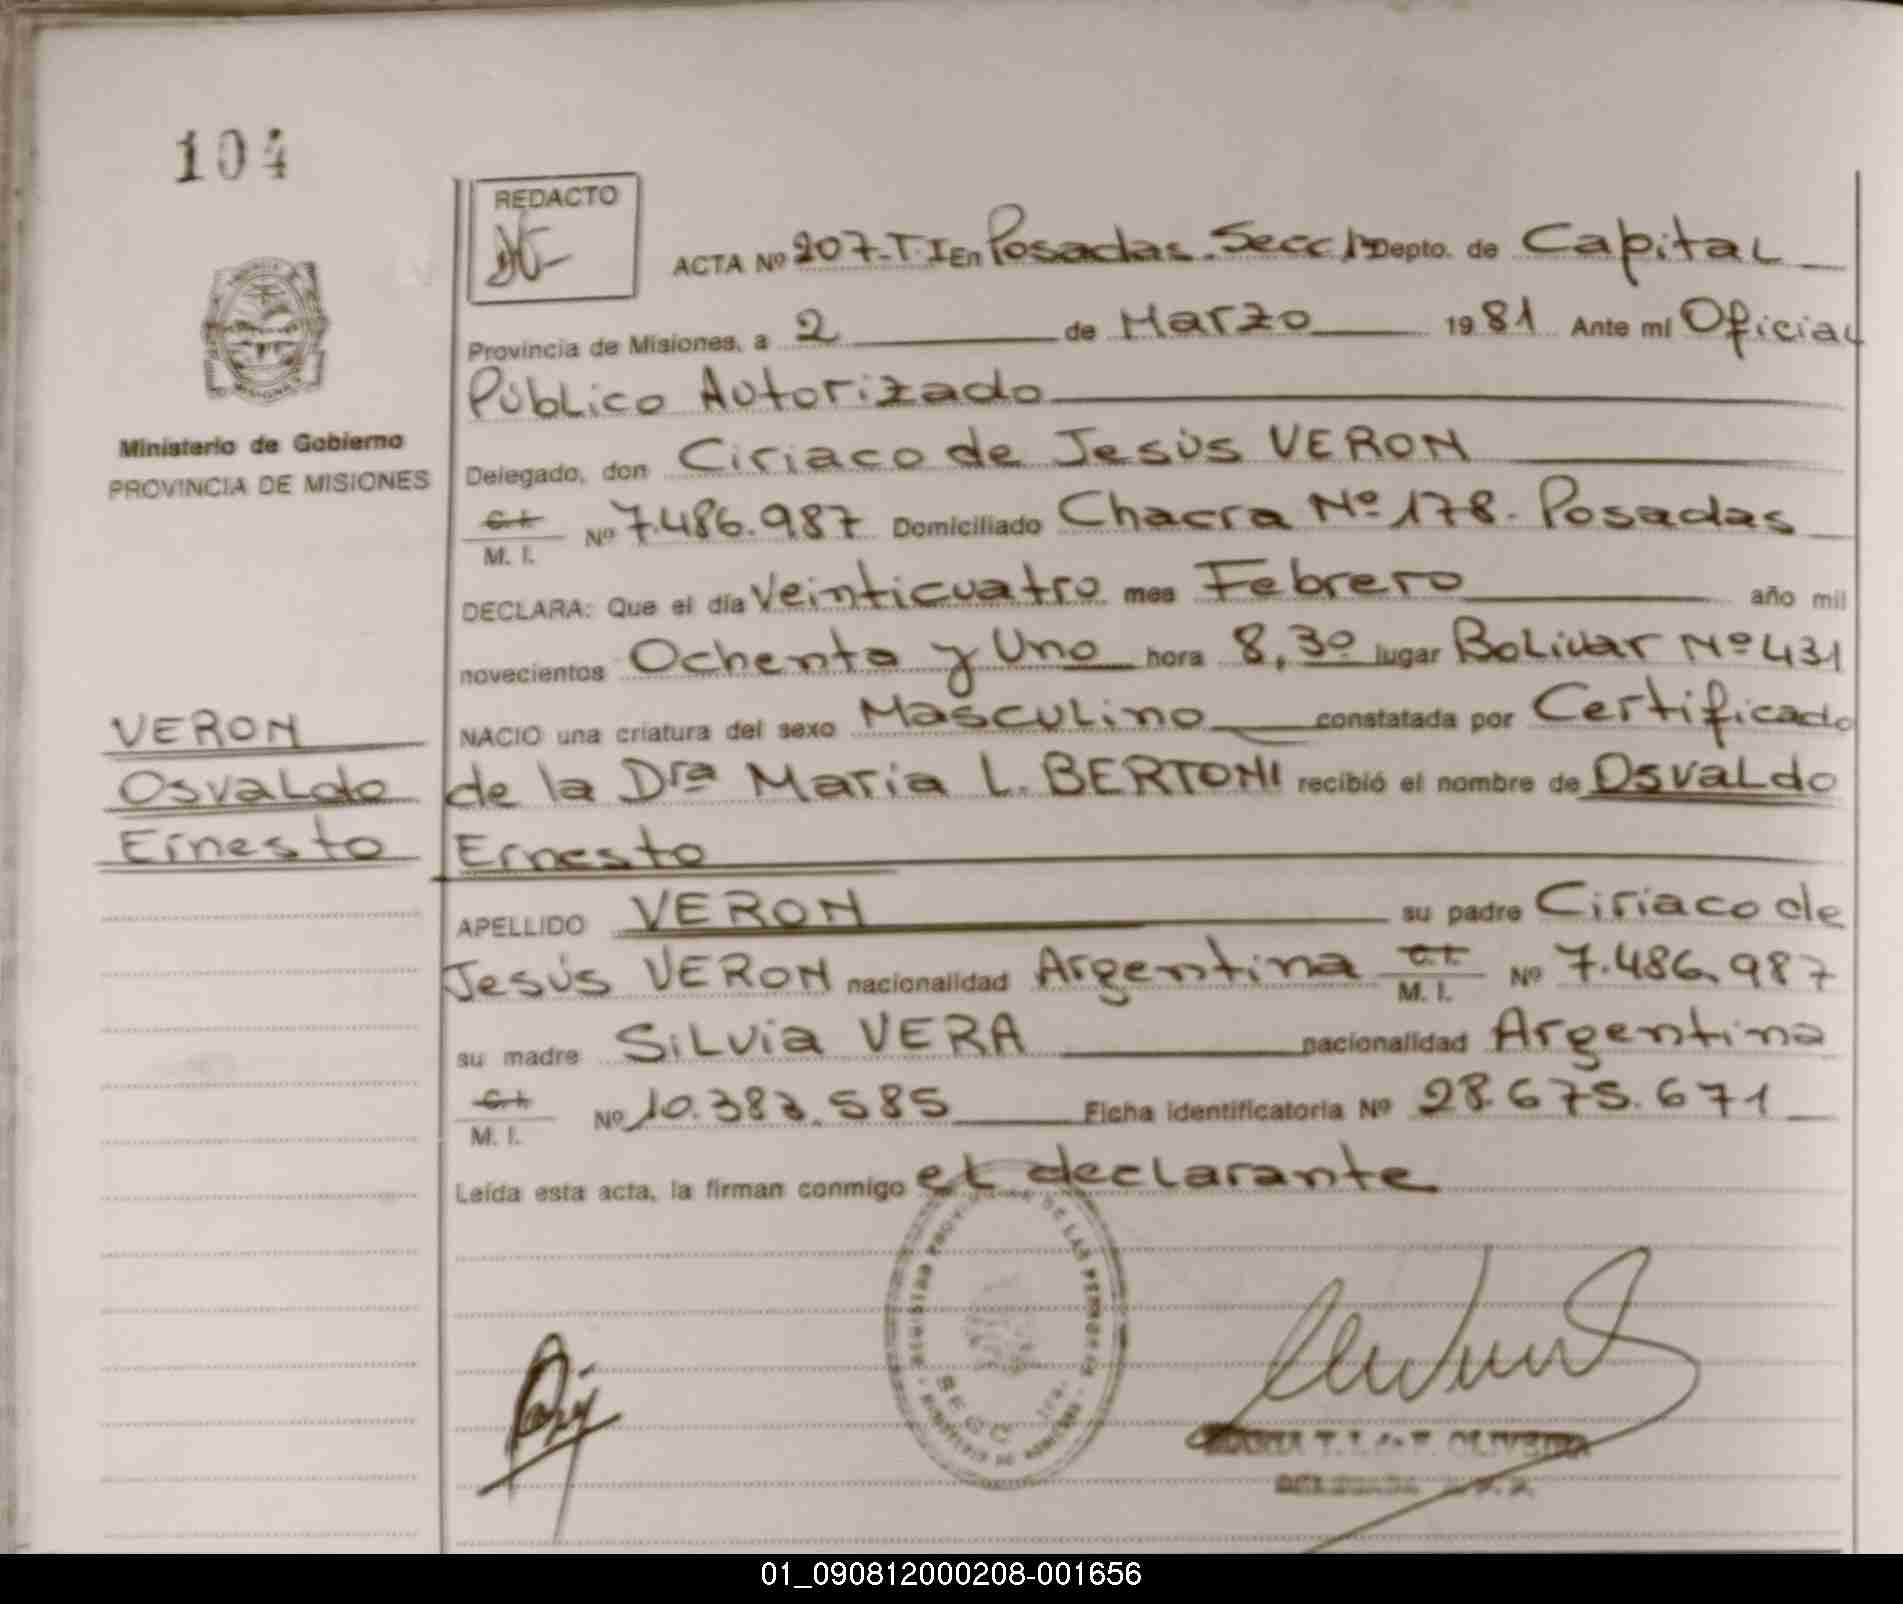 104
REDACTO
ACTA Nº 207-T.I En Posadas. Secc 1ª Depto. de Capital
Provincia de Misiones, a 2 de Marzo 1981 Ante mí Oficial
Público Autorizado
Ministerio de Gobierno
PROVINCIA DE MISIONES
Delegado, don Ciriaco de Jesús VERON
C.I.
M. I. Nº 7.486.987 Domiciliado Chacra Nº 178. Posadas
DECLARA: Que el día Veinticuatro mes Febrero año mil
novecientos Ochenta y Uno hora 8,30 lugar Bolivar Nº 431
NACIO una criatura del sexo Masculino constatada por Certificado
VERON
Osvaldo
Ernesto
de la Dra Maria L. BERTONI recibió el nombre de Osvaldo
Ernesto
APELLIDO VERON su padre Ciriaco de
Jesús VERON nacionalidad Argentina C.I. M. I. Nº 7.486.987
su madre Silvia VERA nacionalidad Argentina
C.I.
M. I. Nº 10.383.585 Ficha identificatoria Nº 28.675.671
Leída esta acta, la firman conmigo el declarante
DE LAS PERSONAS
T. I. de F. OLIVEIRA
01_090812000208-001656